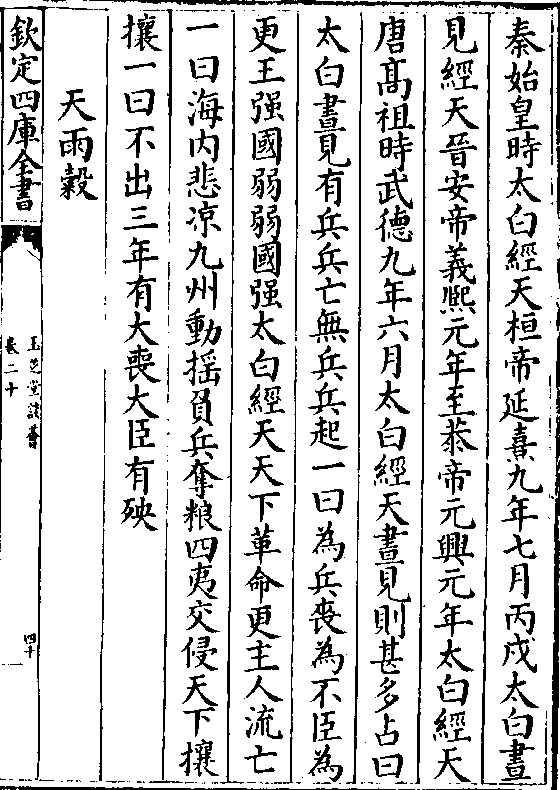 秦始皇時太白經天桓帝延熹九年七月丙戌太白晝
見經天晉安帝義熈元年至恭帝元興元年太白經天
唐髙祖時武德九年六月太白經天晝見則甚多占曰
太白晝見有兵兵亡無兵兵起一曰為兵喪為不臣為
更王强國弱弱國强太白經天天下革命更主人流亡
一曰海内悲凉九州動揺負兵奪粮四夷交侵天下攘
攘一曰不出三年有大喪大臣有殃
天雨穀
欽定四庫全書
玉芝堂談薈
卷二十
四十